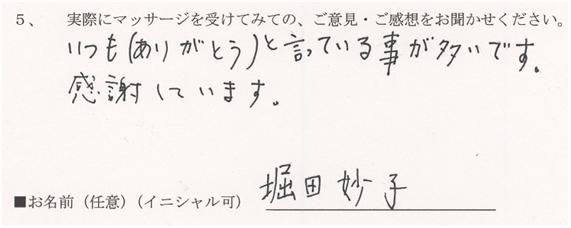 5、 実際にマッサージを受けてみての、ご意見・ご感想をお聞かせください。
いつも(ありがとう)と言っている事が多いです。
感謝しています。
■お名前（任意）（イニシャル可） 堀田妙子